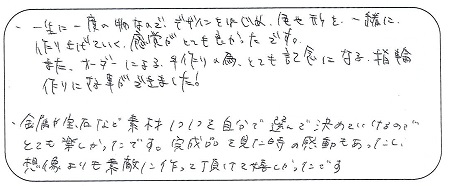 ・一生に一度の物なので、デザインをはじめ、色や形を、一緒に、
作り上げていく、感覚がとても良かったです。
また、オーダーによる、手作りの為、とても記念になる、指輪
作りになる事ができました!
・金属や宝石など素材1つ1つを自分で選んで決めていけるので
とても楽しかったです。完成品を見た時の感動もあったし、
想像よりも素敵に作って頂けて嬉しかったです